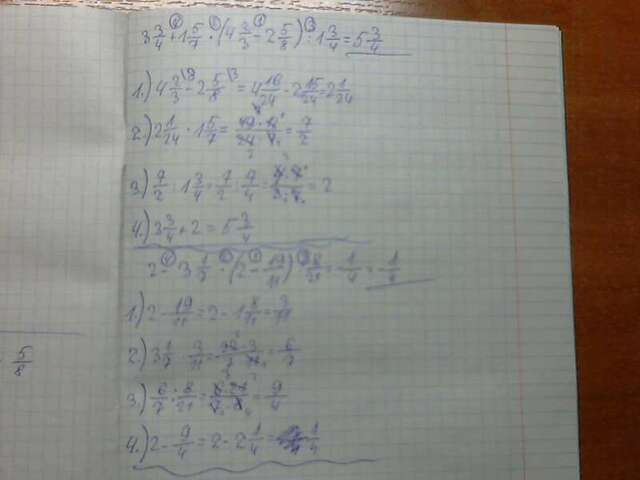 3 3/4 + 1 5/7 · (4 2/3 - 2 5/8) : 1 3/4 = 5 3/4
1.) 4 2/3 - 2 5/8 = 4 16/24 - 2 15/24 = 2 1/24
2.) 2 1/24 · 1 5/7 = 49 · 12 / 24 · 7 = 7/2
3.) 7/2 : 1 3/4 = 7/2 : 7/4 = 7 · 4 / 2 · 7 = 2
4.) 3 3/4 + 2 = 5 3/4
2 - 3 1/7 · (2 - 19/11) : 8/21 = - 1/4 = - 1/4
1.) 2 - 19/11 = 2 - 1 8/11 = 3/11
2.) 3 1/7 · 3/11 = 22 · 3 / 7 · 11 = 6/7
5/8
3.) 6/7 : 8/21 = 6 · 21 / 7 · 8 = 9/4
4.) 2 - 9/4 = 2 - 2 1/4 = - 1/4